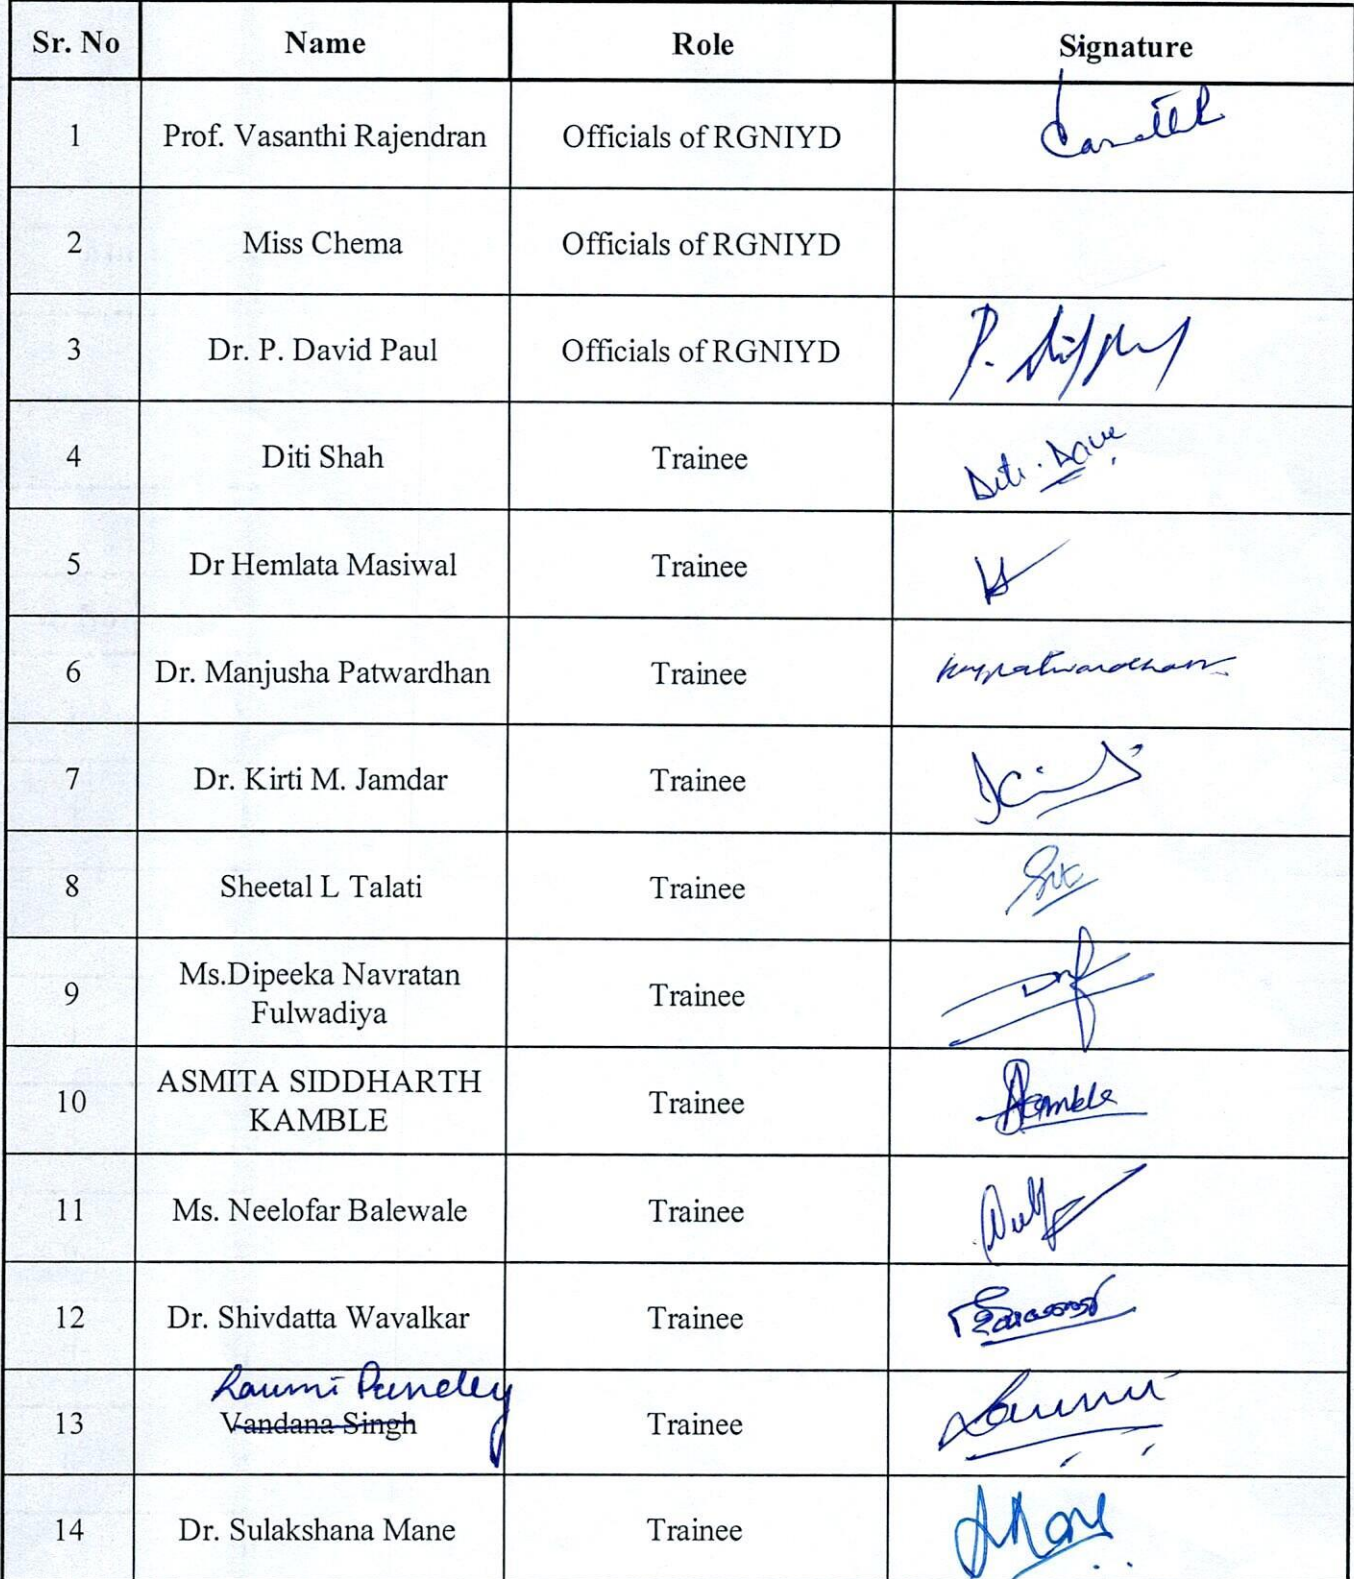 Sr. No Name Role Signature
1 Prof. Vasanthi Rajendran Officials of RGNIYD
2 Miss Chema Officials of RGNIYD
3 Dr. P. David Paul Officials of RGNIYD P.
4 Diti Shah Trainee Diti. Dave
5 Dr Hemlata Masiwal Trainee
6 Dr. Manjusha Patwardhan Trainee
7 Dr. Kirti M. Jamdar Trainee
8 Sheetal L Talati Trainee
9 Ms.Dipeeka Navratan Trainee
Fulwadiya
10 ASMITA SIDDHARTH Trainee Kamble
KAMBLE
11 Ms. Neelofar Balewale Trainee
12 Dr. Shivdatta Wavalkar Trainee
Pandey
13 Vandana Singh Trainee
14 Dr. Sulakshana Mane Trainee